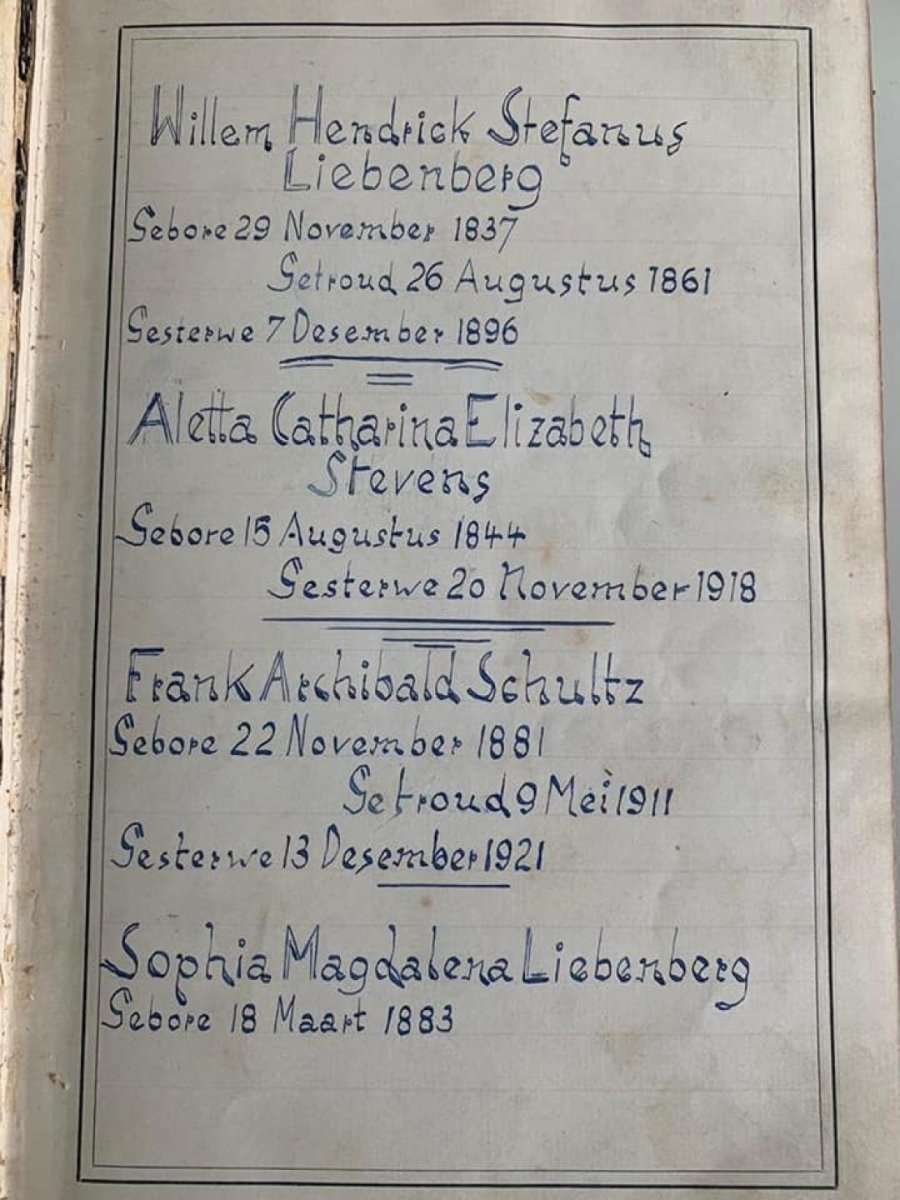 Willem Hendrick Stefanus
Liebenberg
Gebore 29 November 1837
Getroud 26 Augustus 1861
Gesterwe 7 Desember 1896
Aletta Catharina Elizabeth
Stevens
Gebore 15 Augustus 1844
Gesterwe 20 November 1918
Frank Archibald Schultz
Gebore 22 November 1881
Getroud 9 Mei 1911
Gesterwe 13 Desember 1921
Sophia Magdalena Liebenberg
Gebore 18 Maart 1883